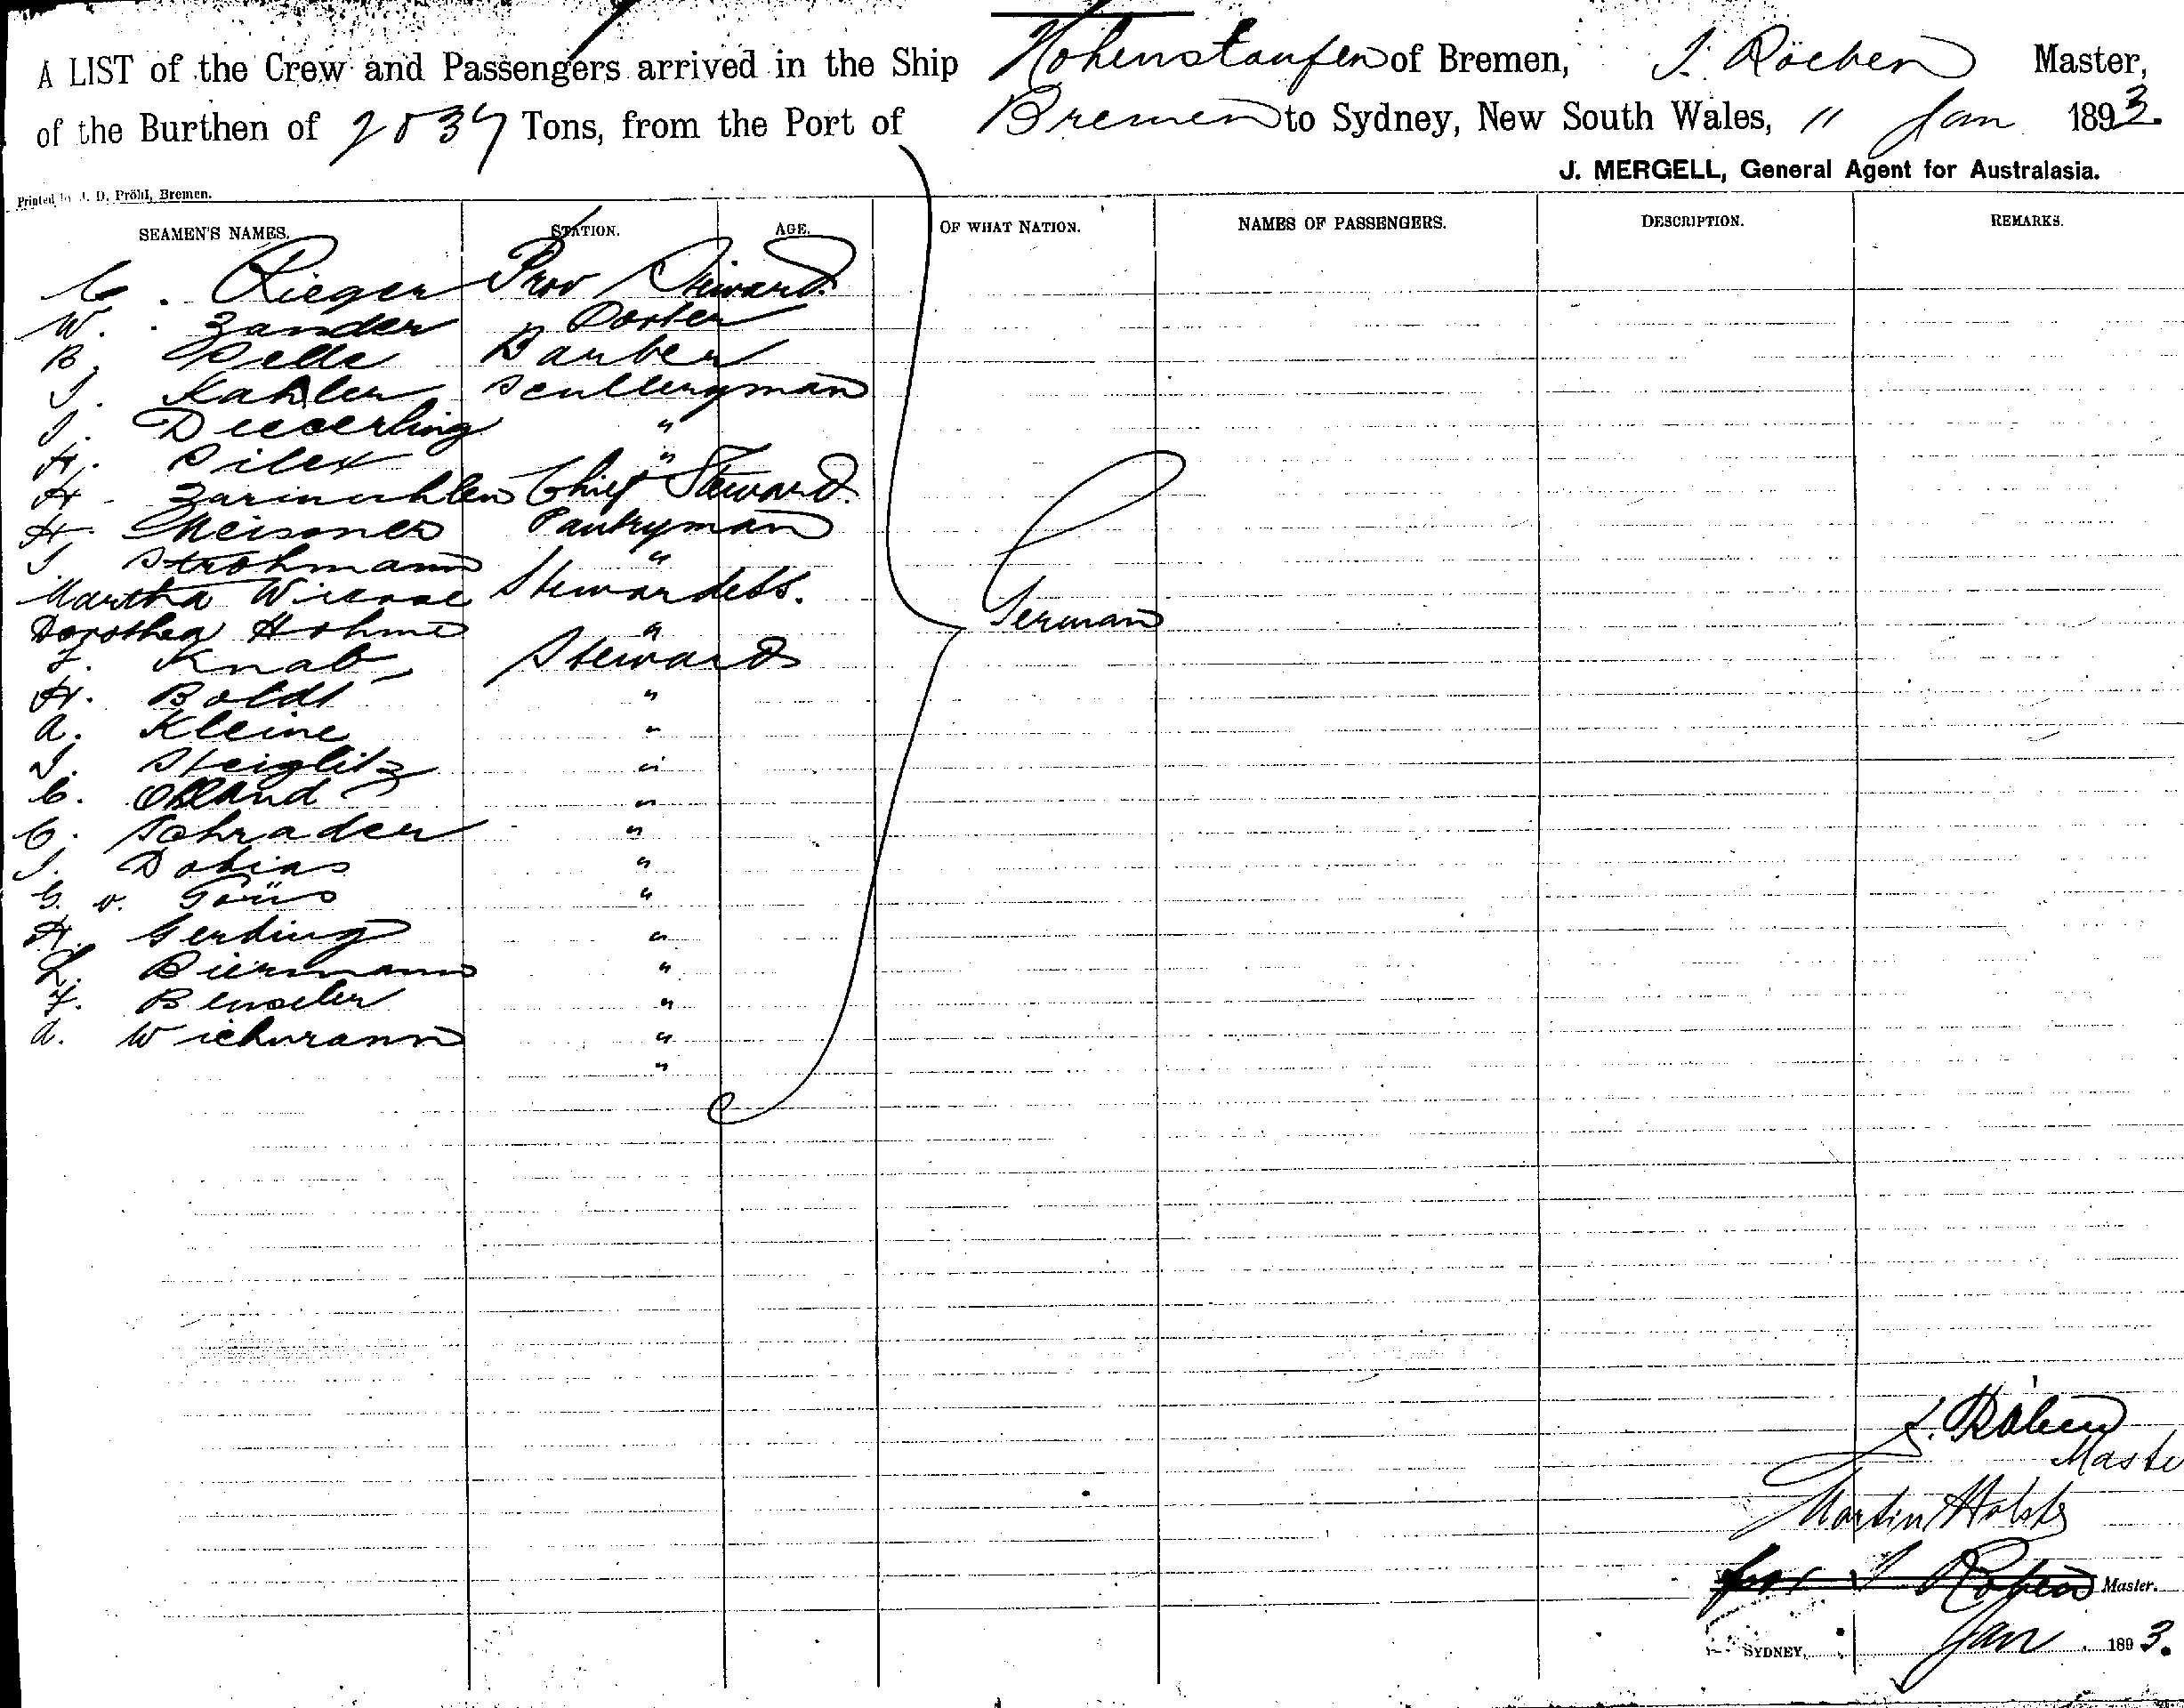 A LIST of the Crew and Passengers arrived in the Ship Hohenstaufen of Bremen, J. Röeben Master,
of the Burthen of Tons, from the Port of Bremen to Sydney, New South Wales, 11 Jan 1893.
J. MERGELL, General Agent for Australasia.
Printed by J. D. Pröhl, Bremen.
SEAMEN'S NAMES. STATION. AGE. OF WHAT NATION. NAMES OF PASSENGERS. DESCRIPTION. REMARKS.
C. Rieger Prov Steward
W. Zander Porter
B. Pelle Barber
J. Kahler Sculleryman
J. "
H. "
H. Zurmuhlen Chief Steward
H. Meisner Pantryman
J. Strohmann "
Martha Stewardess.
Dorothea Hohme " German
F. Knab Steward
H. Boldt "
A. Kleine "
J. Steiglitz "
C. Ohland "
C. Schrader "
J. Dobias "
G. v. "
H. Gerding "
L. Biermann "
F. Benseler "
A. Wichmann "
"
J. Röben
Master
Martin Holst
for J Röben Master.
SYDNEY, Jan 1893.